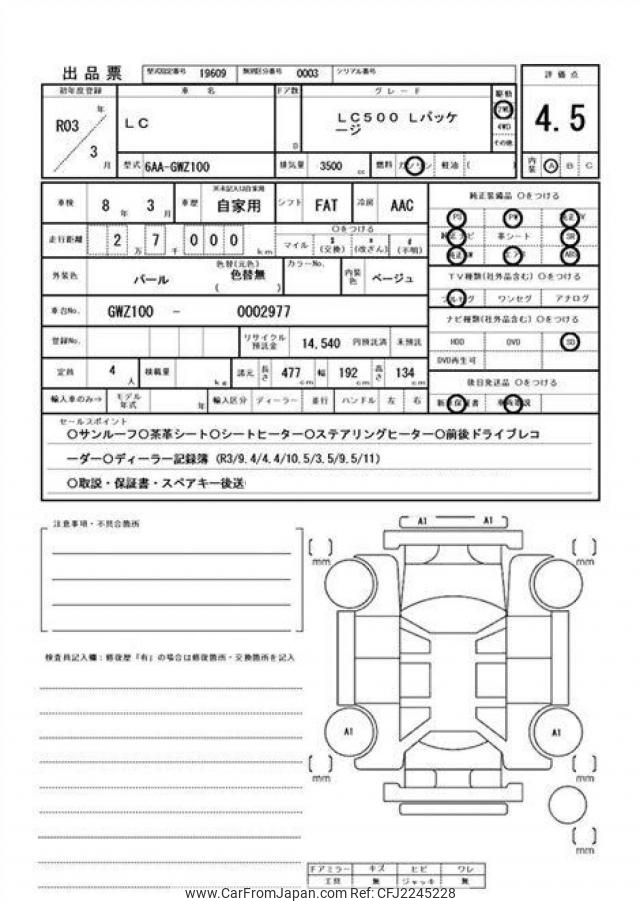 出品票
型式指定番号 19609 類別区分番号 0003 シリアル番号
初年度登録 車 名 ドア数 グレード 駆動 評価点
R03 年 3 月
LC
D
LC500 Lパッケ
ージ
2WD
4WD
その他
4.5
型式 6AA-GWZ100 排気量 3500 cc 燃料 ガソリン 軽油 ( )
内装 A B C
車検 8 年 3 月 車歴 ※未記入は自家用 自家用 シフト FAT 冷房 AAC
純正装備品 ○をつける
PS PW 純正TV
走行距離 2 万 7 千 0 0 0 km
○をつける
マイル $ (交換) * (改ざん) # (不明)
純正ナビ 革シート SR
純正AW エアB ABS
外装色 パール 色替(元色) 色替無 ( ) カラーNo. 内装色 ベージュ
TV種類(社外品含む) ○をつける
フルセグ ワンセグ アナログ
車台No. GWZ100 - 0002977
ナビ種類(社外品含む) ○をつける
登録No. リサイクル預託金 14,540 円預託済 未預託
HDD DVD SD
DVD再生可
定員 4 人 積載量 kg 諸元 長さ 477 cm 幅 192 cm 高さ 134 cm
後日発送品 ○をつける
輸入車のみ→ モデル年式 年 輸入区分 ディーラー 並行 ハンドル 左 右
新車保証書
セールスポイント
○サンルーフ○茶革シート○シートヒーター○ステアリングヒーター○前後ドライブレコ
ーダー○ディーラー記録簿 (R3/9.4/4.4/10.5/3.5/9.5/11)
○取説・保証書・スペアキー後送
注意事項・不具合箇所
A1 A1
mm mm
検査員記入欄:修復歴「有」の場合は修復箇所・交換箇所を記入
A1 A1
mm mm
mm
ドアミラー キズ ヒビ ワレ
工具 無 ジャッキ 無
www.CarFromJapan.com REF:CFJ2245228